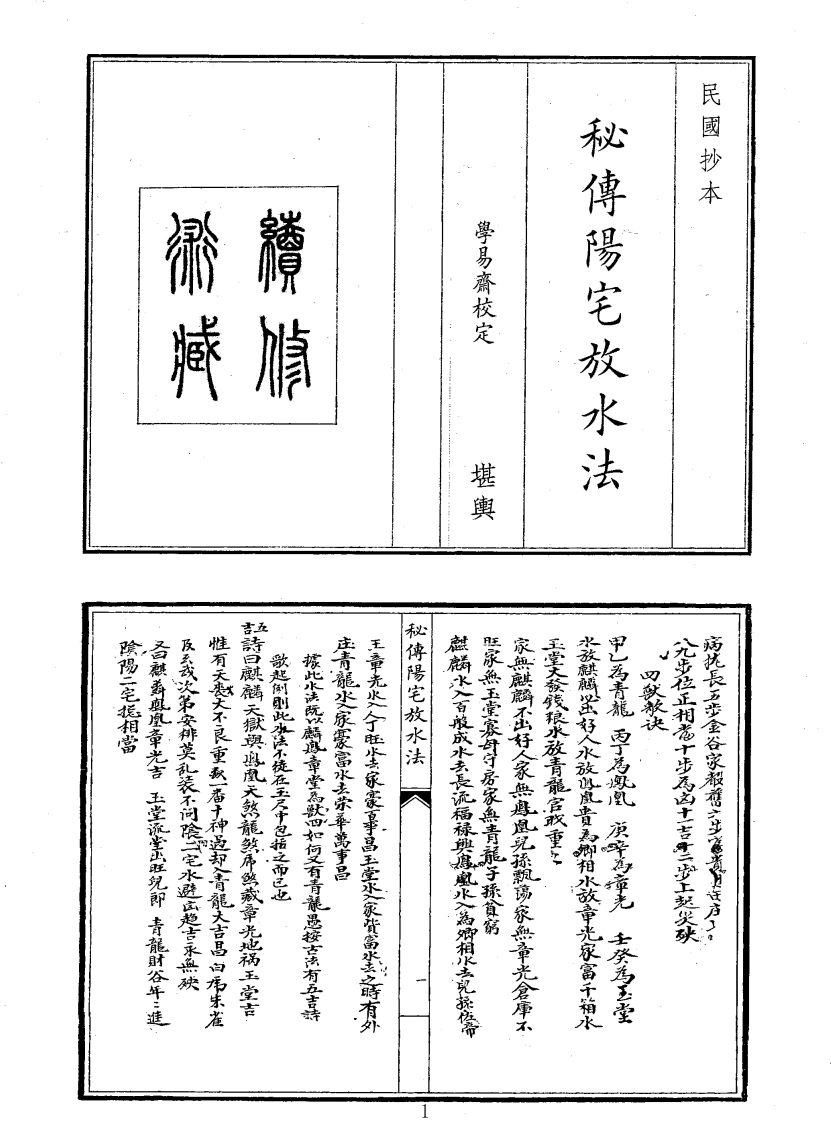 民國抄本
秘傳陽宅放水法
學易齋校定 堪輿
續修
術藏
病抗長五步金谷家殺舊六步富貴
八九步位正相當十步為凶十一吉十二步上起災殃
四獸歌訣
甲乙為青龍 丙丁為鳳凰 庚辛為章光 壬癸為玉堂
水放麒麟出好人水放鳳凰貴為卿相水放章光家富千箱水
玉堂大發錢銀水放青龍官戝重〻
家無麒麟不出好人家無鳳凰兒孫飄蕩家無章光倉庫不
旺家無玉堂寡母守房家無青龍子孫貧窮
麒麟水入百般成水去長流福禄興鳳凰水入為卿相水去兒孫佐帝
王章光水入人丁旺水去家豪百事昌玉堂水入家貲富水去之時有外
庄青龍水入家豪富水去榮華萬事昌
據此水法既以麟鳳章堂為獸四如何又有青龍愚按古法有五吉詩
歌起例則此水法不徒在玉尺中包括之而已也
五吉詩曰麒麟天獄與鳳凰天煞龍煞席煞藏章光地禍玉堂吉
惟有天喪大不良重數一番十神過却入青龍大吉昌白席朱雀
及玄武次第安排莫乱裝不问陰二宅水避凶趨吉永無殃
又曰麒麟鳳凰章光吉 玉堂派堂出旺兒郎 青龍財谷年〻進
陰陽二宅捴相當
秘傳陽宅放水法
一
1